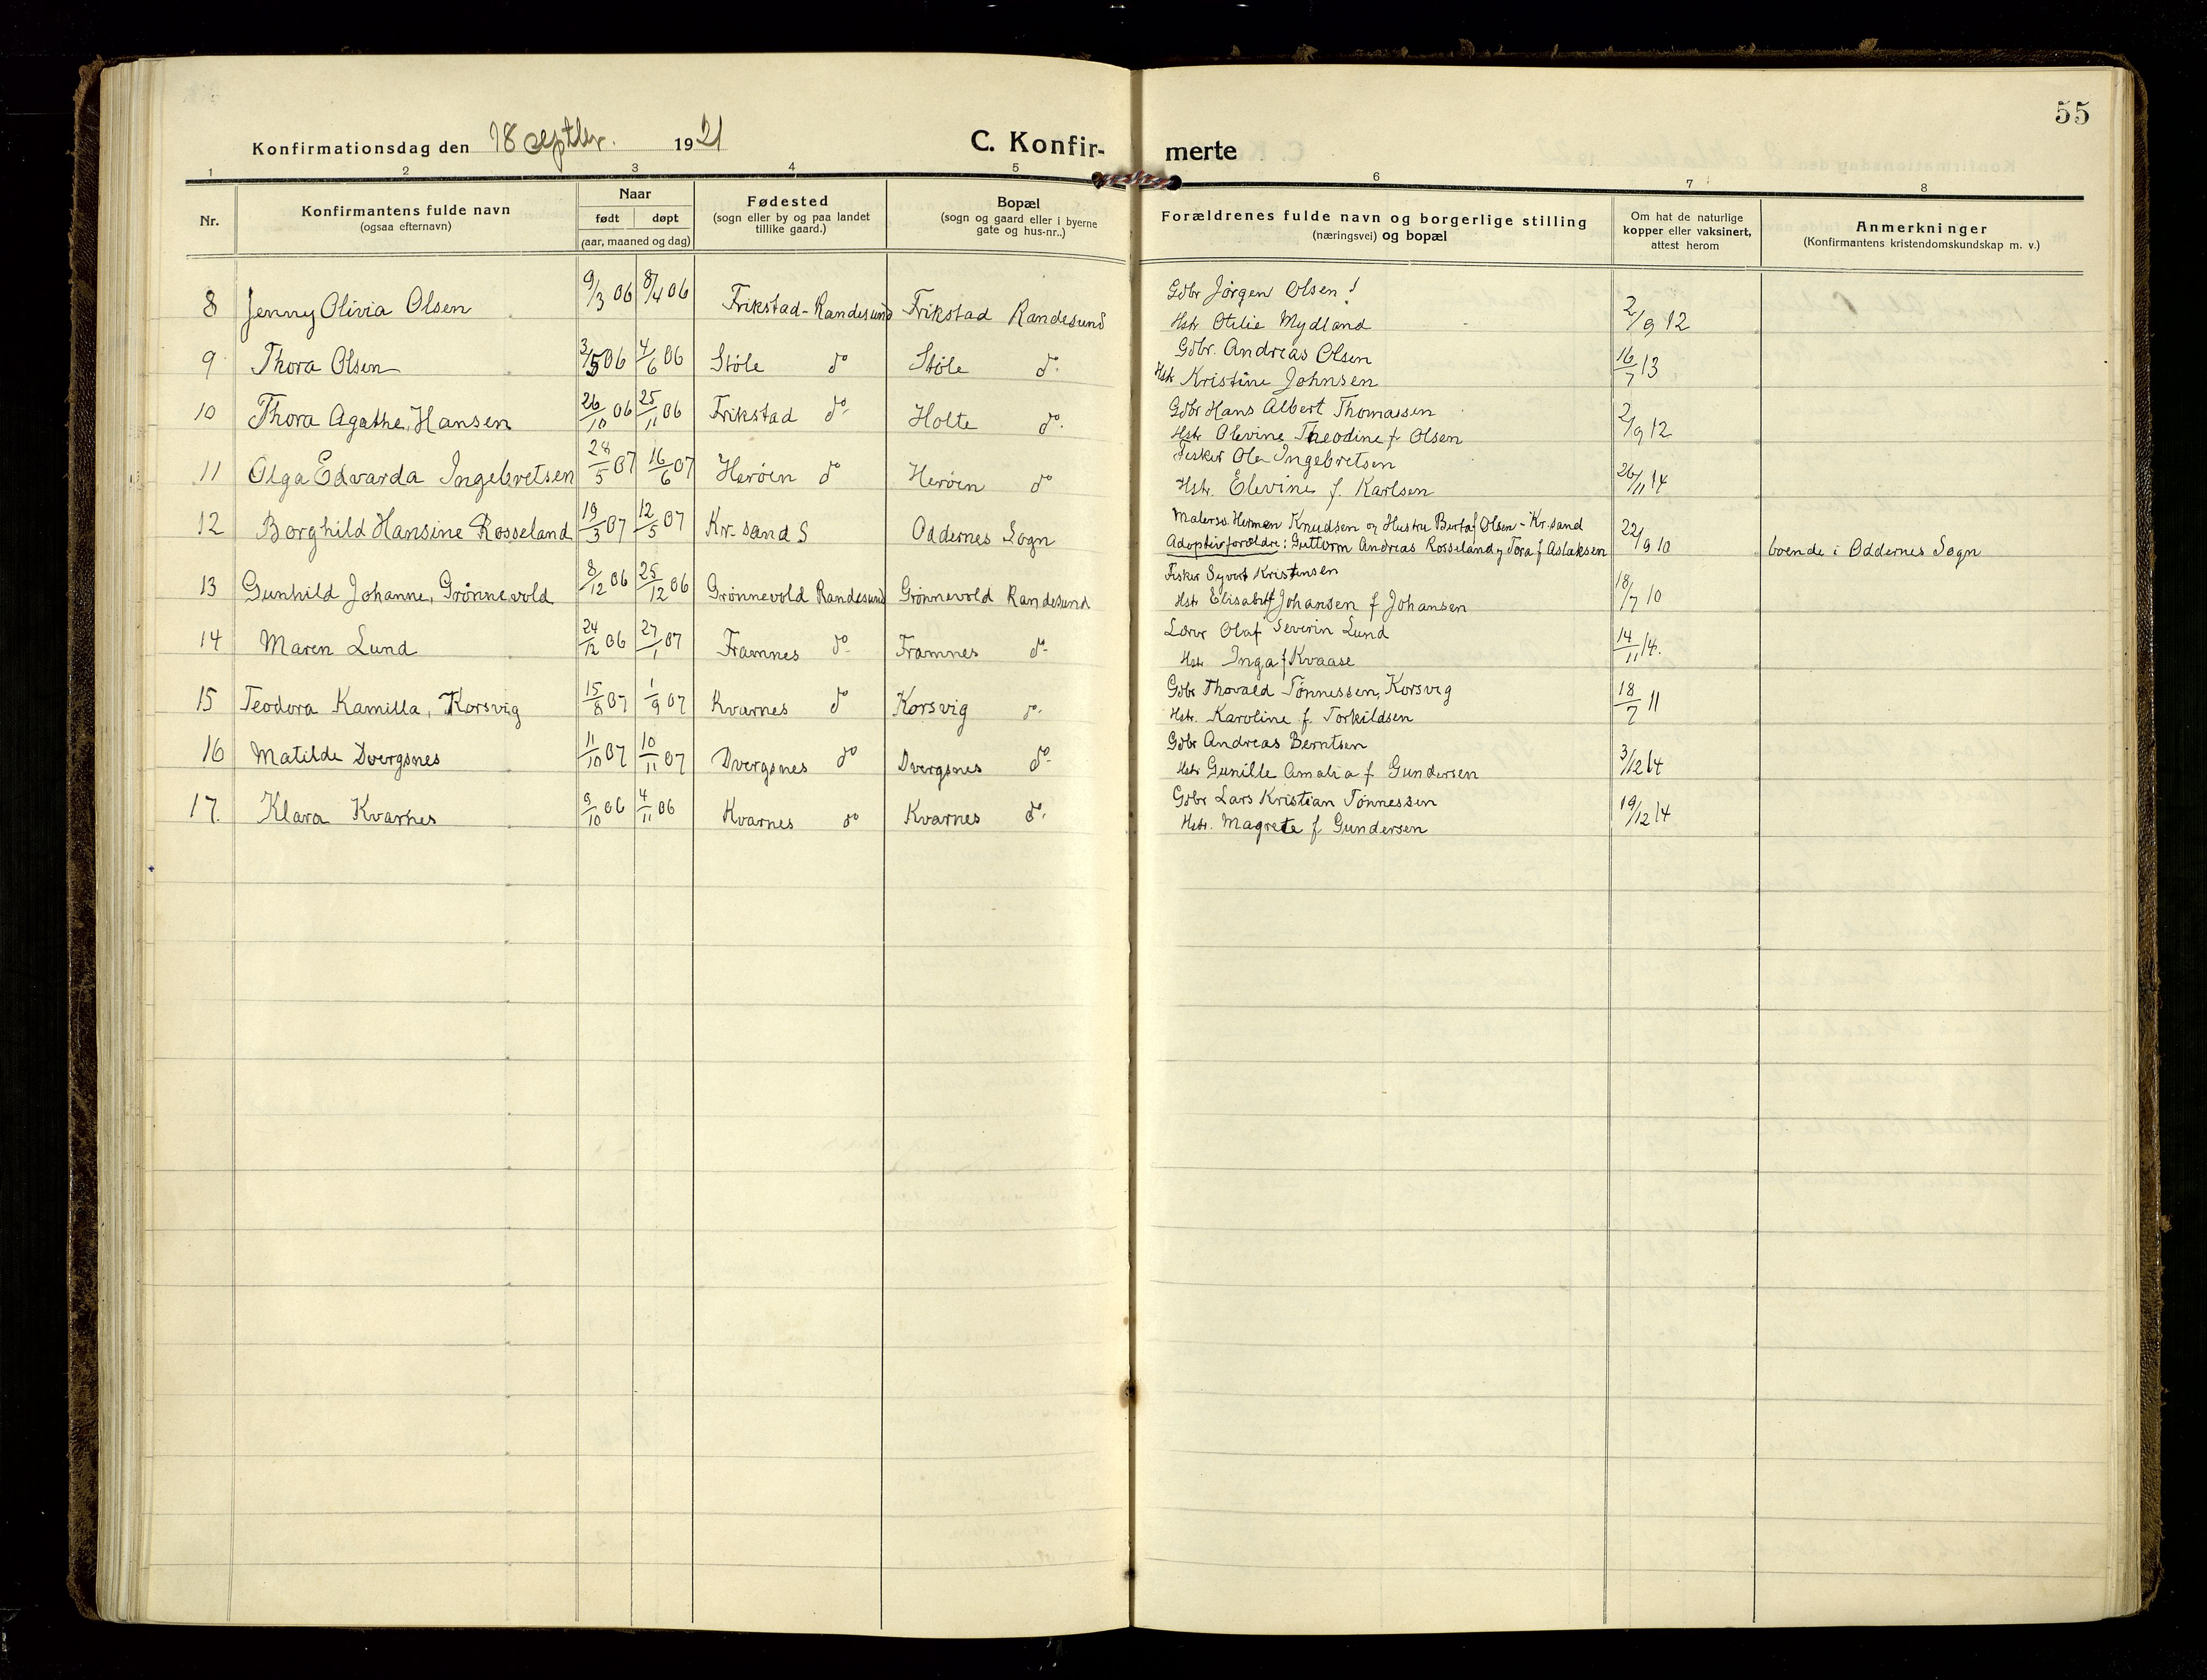 55
Konfirmationsdag den 18 septbr. 1921
C. Konfirmerte
1 2 3 4 5 6 7 8
Nr.
Konfirmantens fulde navn
(ogsaa efternavn)
Naar
født døpt
(aar, maaned og dag)
Fødested
(sogn eller by og paa landet
tillike gaard.)
Bopæl
(sogn og gaard eller i byerne
gate og hus-nr..)
Forældrenes fulde navn og borgerlige stilling
(næringsvei) og bopæl
Om hat de naturlige
kopper eller vaksinert,
attest herom
Anmerkninger
(Konfirmantens kristendomskundskap m. v.)
8 Jenny Olivia Olsen 9/3 06 8/4 06 Frikstad - Randesund Frikstad Randesund Gdbr Jørgen Olsen!
Hstr Otilie Mydland 2/9 12
9 Thora Olsen 3/5 06 4/6 06 Støle do Støle do. Gdbr. Andreas Olsen
Hstr Kristine Johnsen 16/7 13
10 Thora Agathe, Hansen 26/10 06 25/11 06 Frikstad do Holte do. Gdbr Hans Albert Thomassen
Hstr Olevine Theodine f Olsen 2/9 12
11 Olga Edvarda Ingebretsen 28/5 07 16/6 07 Herøen do Herøen do Fisker Ole Ingebretsen
Hstr. Elevine f. Karlsen 26/11 14
12 Borghild Hansine Rosseland 19/3 07 12/5 07 Kr-sand S Oddernes Sogn Malersv. Herman Knudsen og Hustru Berta f Olsen - Kr.sand
Adoptivforældre: Guttorm Andreas Rosseland og Tora f Aslaksen 22/9 10 boende i Oddernes Sogn
13 Gunhild Johanne, Grønnevold 8/12 06 25/12 06 Grønnevold Randesund Grønnevold Randesund Fisker Syvert Kristensen
Hstr Elisabet Johansen f Johansen 18/7 10
14 Maren Lund 24/12 06 27/1 07 Framnes do Framnes do Lærer Olaf Severin Lund
Hstr Inga f Kvaase 14/11 14.
15 Teodora Kamilla, Korsvig 15/8 07 1/9 07 Kvarnes do Korsvig do. Gdbr Thovald Tønnessen, Korsvig
Hstr. Karoline f. Torkildsen 18/7 11
16 Matilde Dvergsnes 11/10 07 10/11 07 Dvergsnes do Dvergsnes do Gdbr Andreas Berntsen
Hstr Gunille Amalia f Gundersen 3/12 14
17. Klara Kvarnes 9/10 06 4/11 06 Kvarnes do Kvarnes do. Gdbr Lars Kristian Tønnessen
Hstr. Magrete f Gundersen 19/12 14